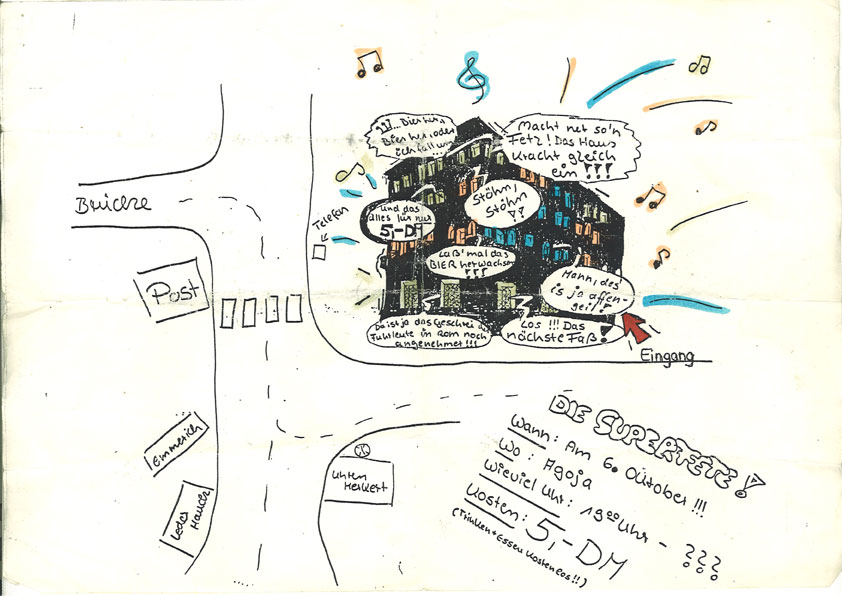 !!!... Bier her,
Bier her, oder
ich fall um
...
Macht net so'n
Fetz! Das Haus
kracht gleich
ein !!!
Stöhn,
Stöhn
!!
und das
alles für nur
5,-DM
Laß' mal das
BIER herwachsen
!!!
Mann, des
is ja affen-
geil!!
Da ist ja das Geschrei der
Fuhrleute in Rom noch
angenehmer!!!
Los !!! Das
nächste Faß!
Eingang
Brücke
Telefon
Post
Emmerich
Leder
Mauck
Uhren
Herkert
DIE SUPERFETE!
Wann: Am 6. Oktober!!!
Wo: Agoja
Wieviel Uhr: 19⁰⁰ Uhr - ???
Kosten: 5,-DM
(Trinken + Essen kostenlos!!)